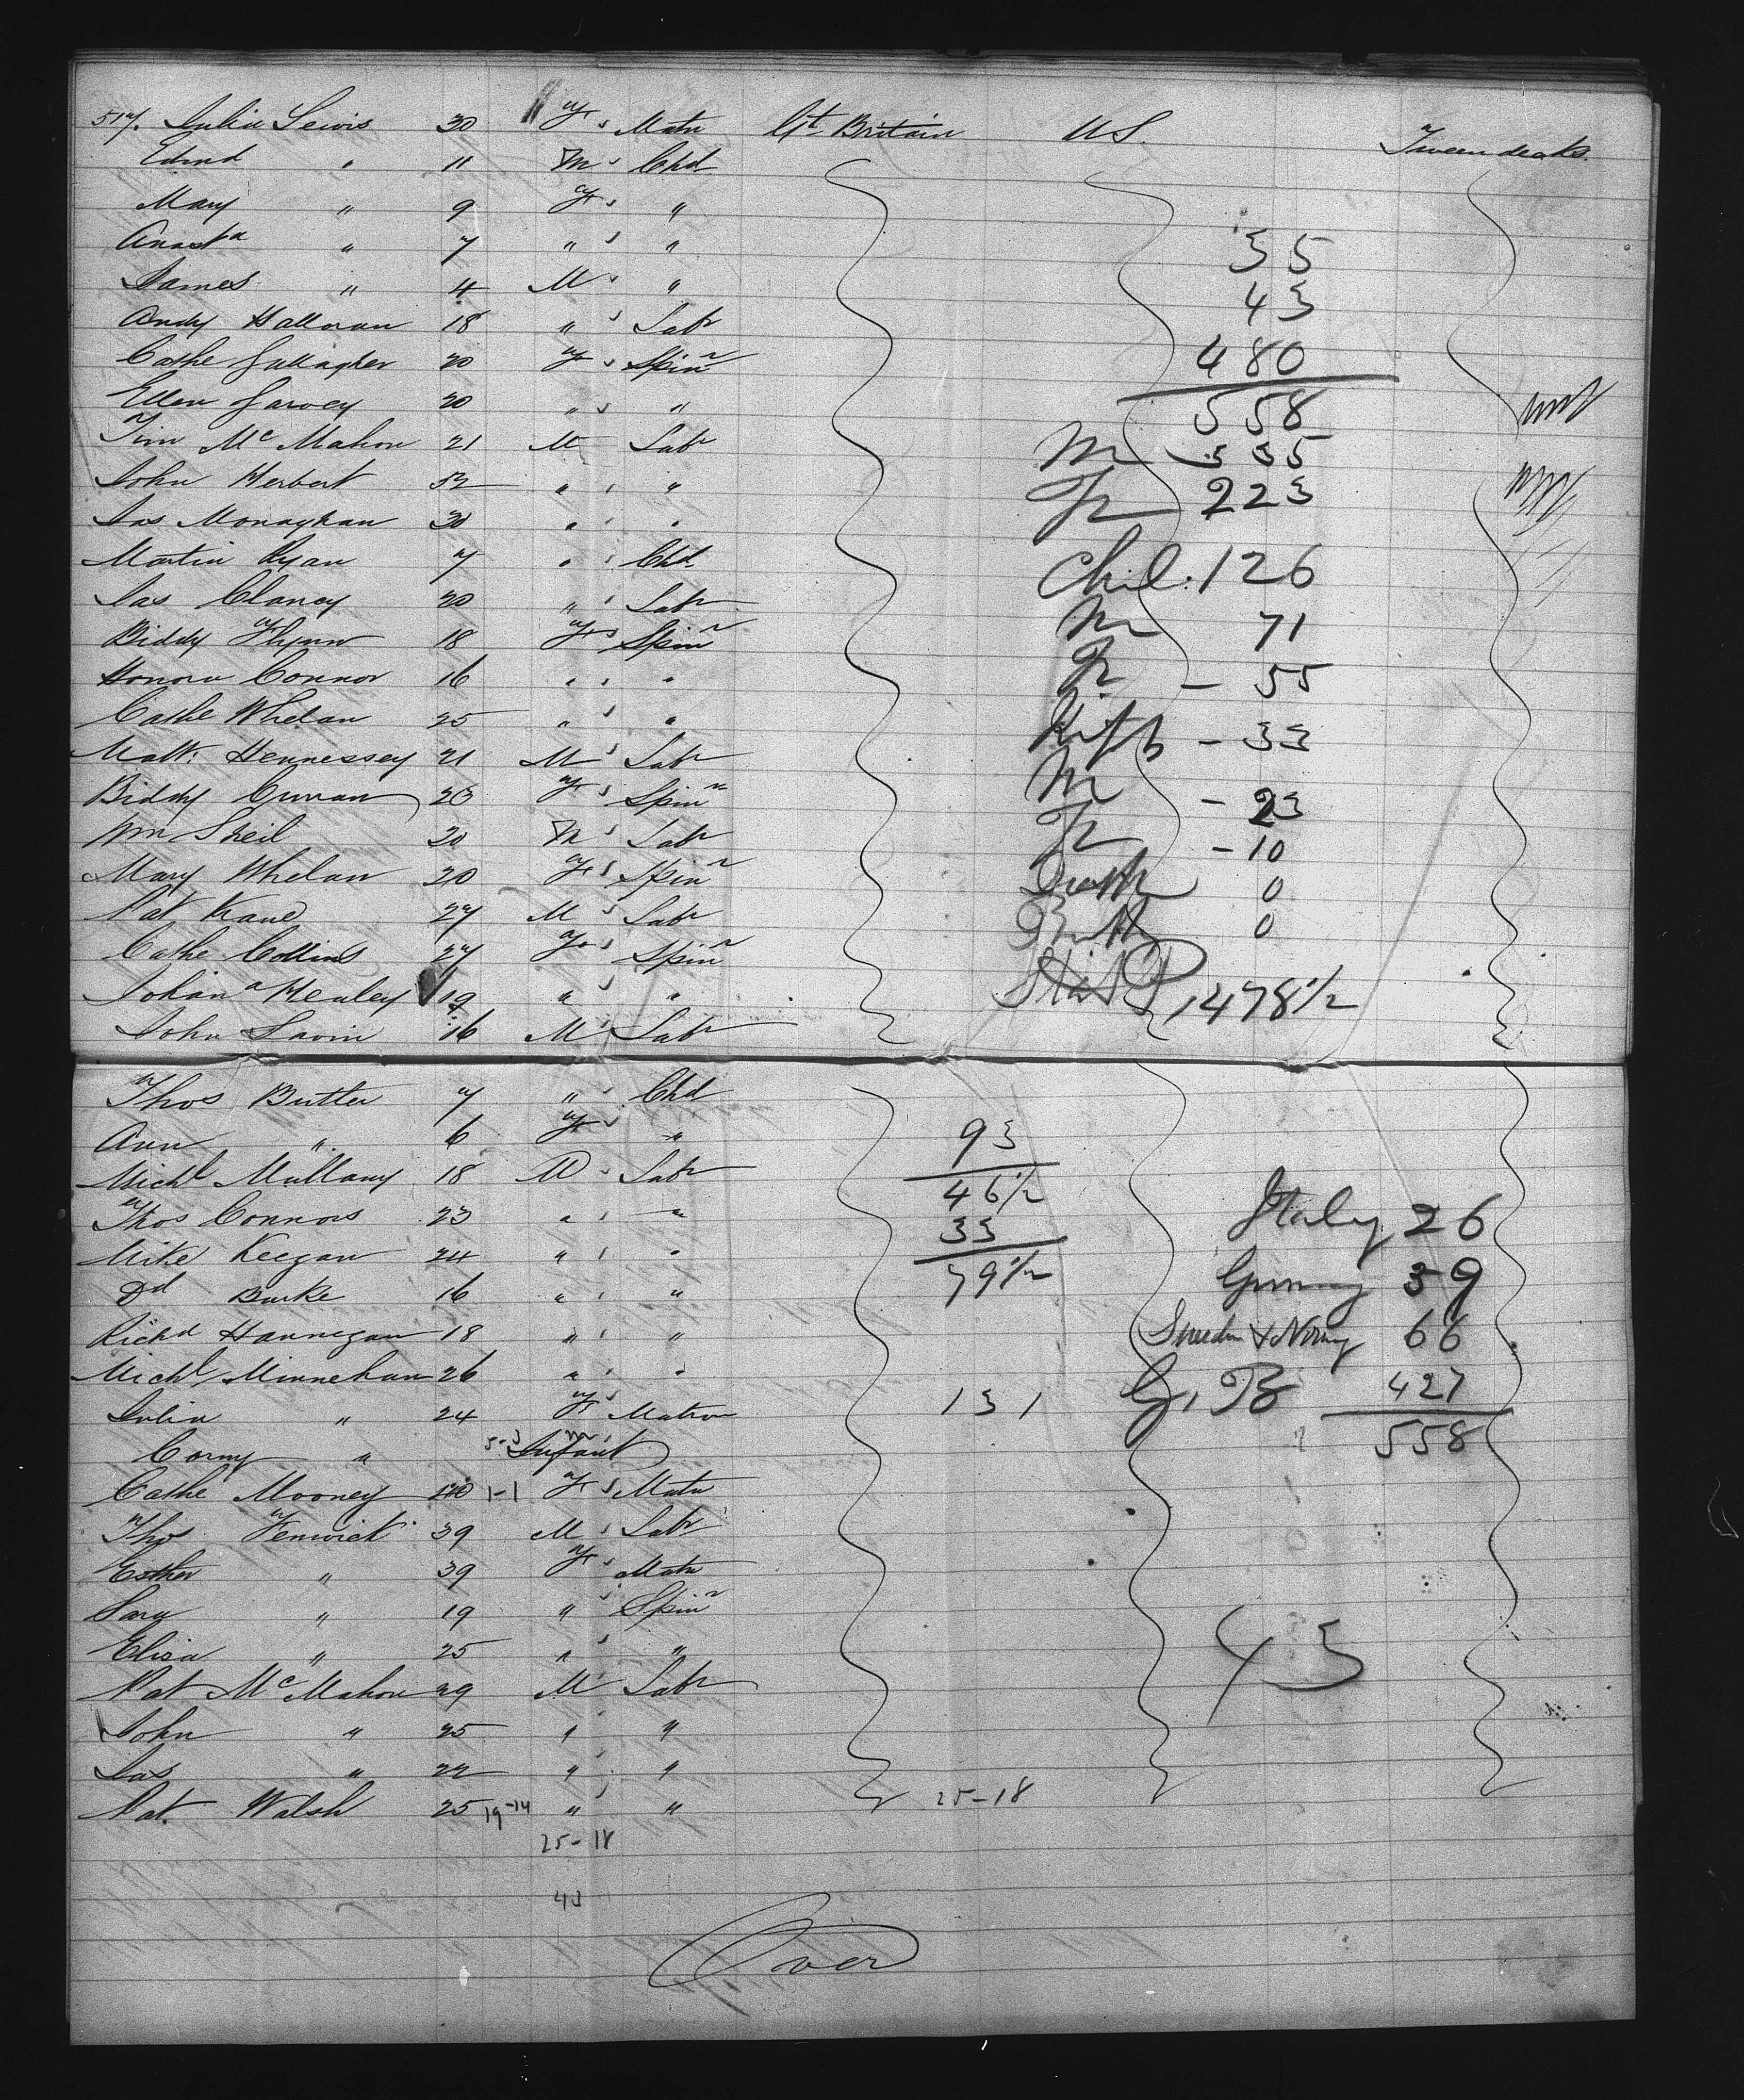 517. Julia Lewis 30 F s Matn Gt Britain U S. Tween decks.
Edmd " 11 M s Chd
Mary " 9 F s "
Anasta " 7 " s "
James " 4 M s " 35
Andy Halloran 18 " s Labr 43
Cathe Gallagher 20 F s Spinr 480
Ellen Garvey 20 " s " 558
Tim McMahon 21 M Labr M 335
John Herbert 52 " " " F 223
Jas Monaghan 30 " " "
Martin Ryan 7 " " Chd Chil: 126
Jas Clancy 20 " " Labr M 71
Biddy Flynn 18 F s Spinr F - 55
Honora Connor 16 " " "
Cathe Whelan 25 " s " Inft - 33
Matt: Hennessey 21 M s Labr M - 23
Biddy Curran 20 F s Spinr F - 10
Wm Sheil 20 M s Labr
Mary Whelan 20 F s Spinr Death 0
Pat Kane 27 M s Labr Birth 0
Cathe Collins 27 F s Spinr
Johana Healey 19 " s " Stat P 1478 1/2
John Lavin 16 M s Labr
Thos Butler 7 " s Chd
Ann " 6 F s " 93
Michl Mullany 18 M s Labr 46 1/2
Thos Connors 23 " " " 33 Italy 26
Mike Keegan 24 " " " 79 1/2 Germany 39
Burke 16 " " "
Richd Hannegan 18 " " " Sweden & Norwy 66
Michl Minnehan 26 " " " 131 G, B 427
Julia " 24 F s Matron 558
Corny " 5-3 Infant m
Cathe Mooney 40 1-1 F s Matn
Thos Fenwick 39 M s Labr
Esther " 39 F s Matn
Sara " 19 " s Spinr
Eliza " 25 " s " 43
Pat McMahon 29 M s Labr
John " 25 " " "
Jas " 22 " " "
Pat. Walsh 25 19-14 " " " 25-18
25-18
43
Over